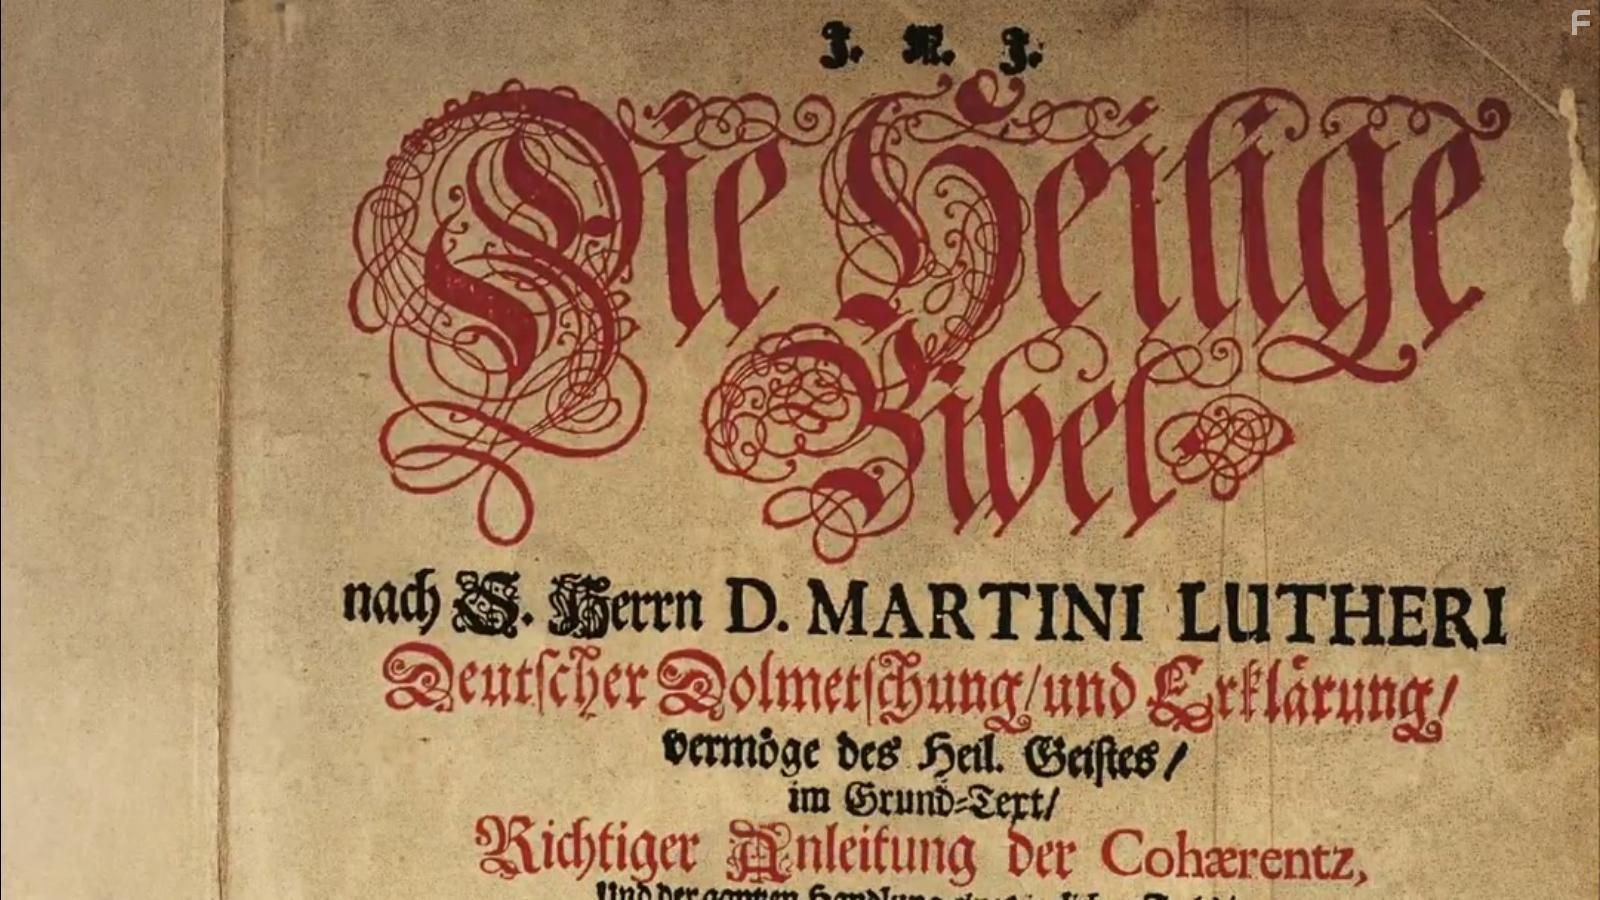 J. N. J.
Die Heilige
Bibel
nach S. Herrn D. MARTINI LUTHERI
Deutscher Dolmetschung/ und Erklärung/
vermöge des Heil. Geistes/
im Grund-Text/
Richtiger Anleitung der Cohærentz,
Und der gantzen Handlung
F